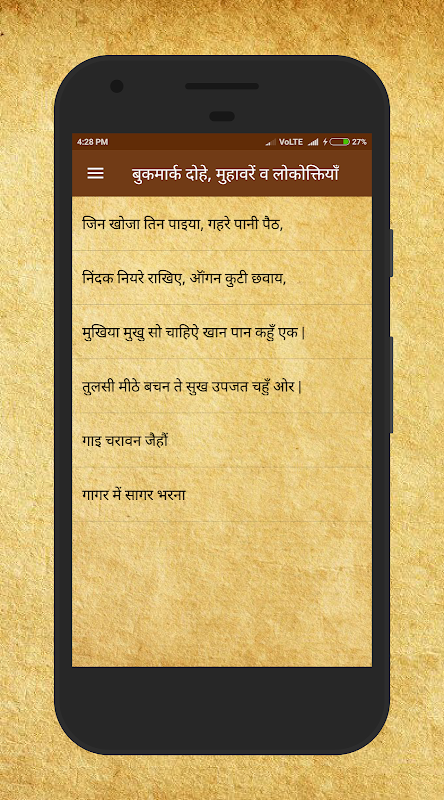 4:28 PM VoLTE 27%
बुकमार्क दोहे, मुहावरें व लोकोक्तियाँ
जिन खोजा तिन पाइया, गहरे पानी पैठ,
निंदक नियरे राखिए, ऑंगन कुटी छवाय,
मुखिया मुखु सो चाहिऐ खान पान कहुँ एक |
तुलसी मीठे बचन ते सुख उपजत चहुँ ओर |
गाइ चरावन जैहौं
गागर में सागर भरना